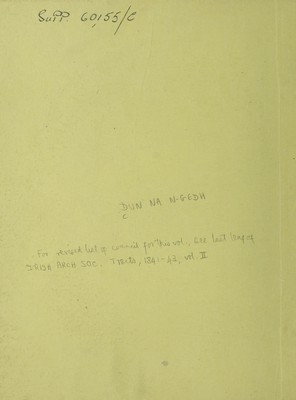 SUPP. 60,155/C
DUN NA N-GEDH
C
For revised list of council for this vol. see last leaf of
IRISH ARCH SOC. Tracts, 1841-42, vol. II